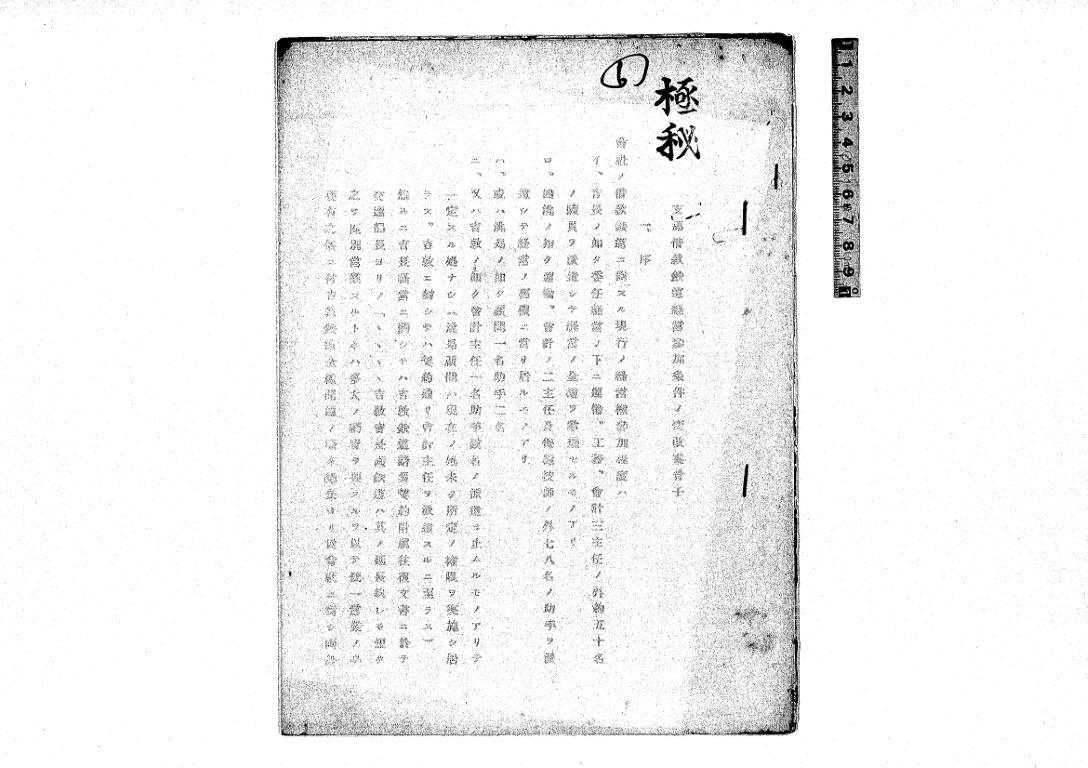 極秘
支那借款鉄道経営参加条件ノ改案骨子
一、序
会社ノ借款鉄道ニ対スル現行ノ経営権参加程度ハ
イ、吉長ノ如ク委任経営ノ下ニ運輸、工務、会計三主任ノ外約五十名
ノ職員ヲ派遣シテ経営ノ全権ヲ掌理セルモノアリ
ロ、四洮ノ如ク運輸、会計ノ二主任及 技師ノ外七八名ノ助手ヲ派
遣シテ経営ノ 機ニ当リ居ルモノアリ
ハ、或ハ洮昂ノ如ク顧問一名助手二名
ニ、又ハ吉敦ノ如ク会計主任一名助手数名ノ派遣ニ止ムルモノアリテ
一定スル処ナシ(洮昂顧問ハ現在ノ処未タ所定ノ権限ヲ実施シ居
ラス、吉敦ニ対シテハ契約通リ会計主任ヲ派遣スルニ至ラス)
然ルニ吉長 ニ関シテハ吉敦鉄道請負契約附属往復文書ニ於テ
交通部長ヨリノ「、、、、吉敦吉長両鉄道ハ其ノ延長 レモ
之ヲ区別営業スルトキハ多大ノ経費ヲ要スルヲ以テ統一営業ノ
ニ付吉敦鉄道全線開通ノ ヨリ 会社ニ対シ両鉄